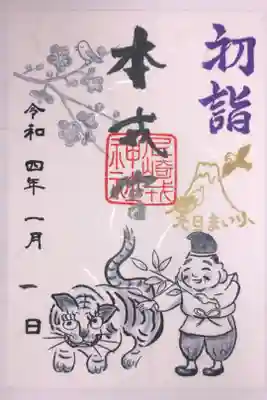 初詣
元日まいり
本戎
尼崎戎
神社
令和四年一月一日